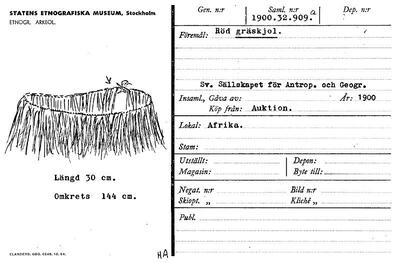 STATENS ETNOGRAFISKA MUSEUM, Stockholm
ETNOGR. ARKEOL.
Längd 30 cm.
Omkrets 144 cm.
CLANDERS, GBG. 0248. 10. 64.
HA
Gen. n:r Saml. n:r Dep. n:r
1900.32.909. a
Föremål: Röd gräskjol.
Sv. Sällskapet för Antrop. och Geogr.
Insaml., Gåva av: År: 1900
Köp från: Auktion.
Lokal: Afrika.
Stam:
Utställt: Depon:
Magasin: Byte till:
Negat. n:r Bild n:r
Skiopt. „ Kliché „
Publ.